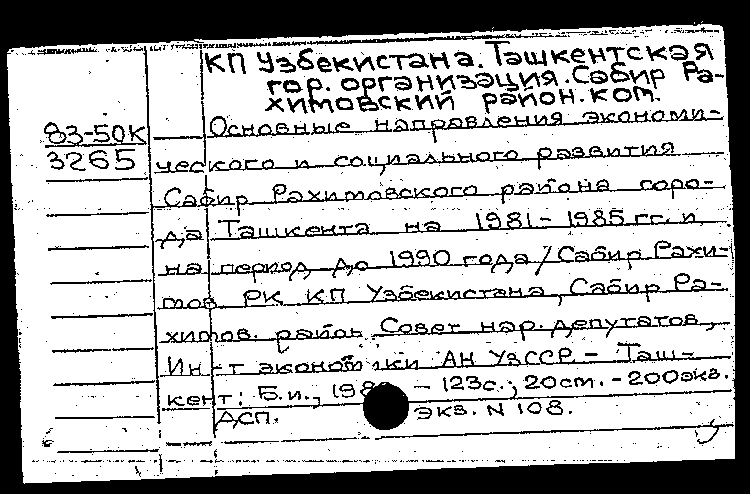 КП Узбекистана. Ташкентская
гор. организация. Сабир Ра-
химовский район. ком.
83-50К
3265
Основные направления экономи-
ческого и социального развития
Сабир Рахимовского района горо-
да Ташкента на 1981-1985 гг. и
на период до 1990 года / Сабир Рахи-
мов. РК КП Узбекистана, Сабир Ра-
химов. район. Совет нар. депутатов,
Ин-т экономики АН УзССР. - Таш-
кент: Б.и., - 123с.; 20см. - 200экз.
ДСП. экз. N 108.